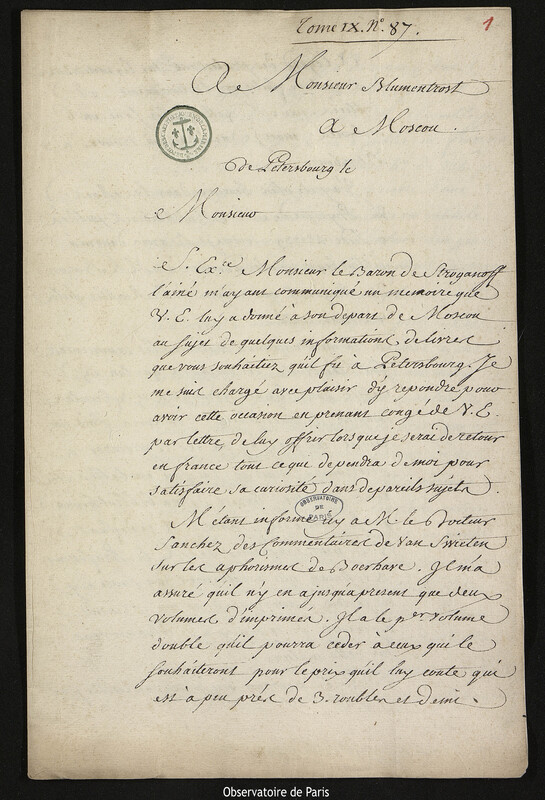 Tome IX. N.º 87.
1
A Monsieur Blumentrost
A Moscou.
de Petersbourg le
Monsieur
S. Ex.ce Monsieur le Baron de Stroganoff
l'ainé m'ayant communiqué un memoire que
V. E. luy a donné a son depart de Moscou
au sujet de quelques informations de livres
que vous souhaitiez qu'il fit à Petersbourg. Je
me suis chargé avec plaisir d'y repondre pour
avoir cette occasion en prenant congé de V. E.
par lettre, de luy offrir lorsque je serai de retour
en france tout ce qui dependra de moi pour
satisfaire sa curiosité dans de pareils sujets.
M'étant informé icy a M. le Docteur
Sanchez des Commentaires de Van Swieten
sur les aphorismes de Boerhave. Il m'a
assuré qu'il n'y en a jusqu'a present que deux
volumes d'imprimés. Il a le p.er volume
double qu'il pourra ceder a ceux qui le
souhaiteront pour le prix qu'il luy coute qui
est a peu près de 3. roubles et demi.
OBSERVATOIRE
DE
PARIS
Observatoire de Paris